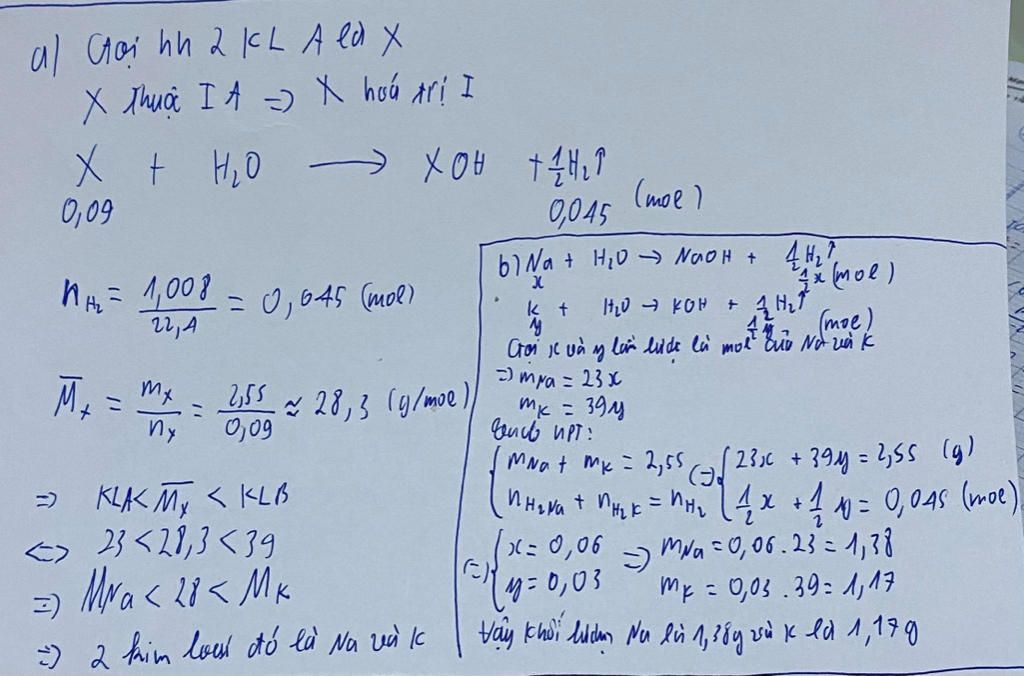 a) Gọi hh 2 KL A là X
X thuộc IA => X hoá trị I
X + H₂O ⟶ XOH + 1/2 H₂↑
0,09 0,045 (mol)
n H₂ = 1,008/22,4 = 0,045 (mol)
M̅x = mx/nx = 2,55/0,09 ≈ 28,3 (g/mol)
=> KLA < M̅x < KLB
<=> 23 < 28,3 < 39
=> MNa < 28 < MK
=> 2 kim loại đó là Na và K
b) Na + H₂O → NaOH + 1/2 H₂↑
x 1/2 x (mol)
K + H₂O → KOH + 1/2 H₂↑
y 1/2 y (mol)
Gọi x và y lần lượt là mol của Na và K
=> mNa = 23x
mK = 39y
HPT:
{ mNa + mK = 2,55 (=) { 23x + 39y = 2,55 (g)
nH₂Na + nH₂K = nH₂ 1/2 x + 1/2 y = 0,045 (mol)
(=) { x = 0,06 => mNa = 0,06 . 23 = 1,38
y = 0,03 mK = 0,03 . 39 = 1,17
Vậy khối lượng Na là 1,38g và K là 1,17g